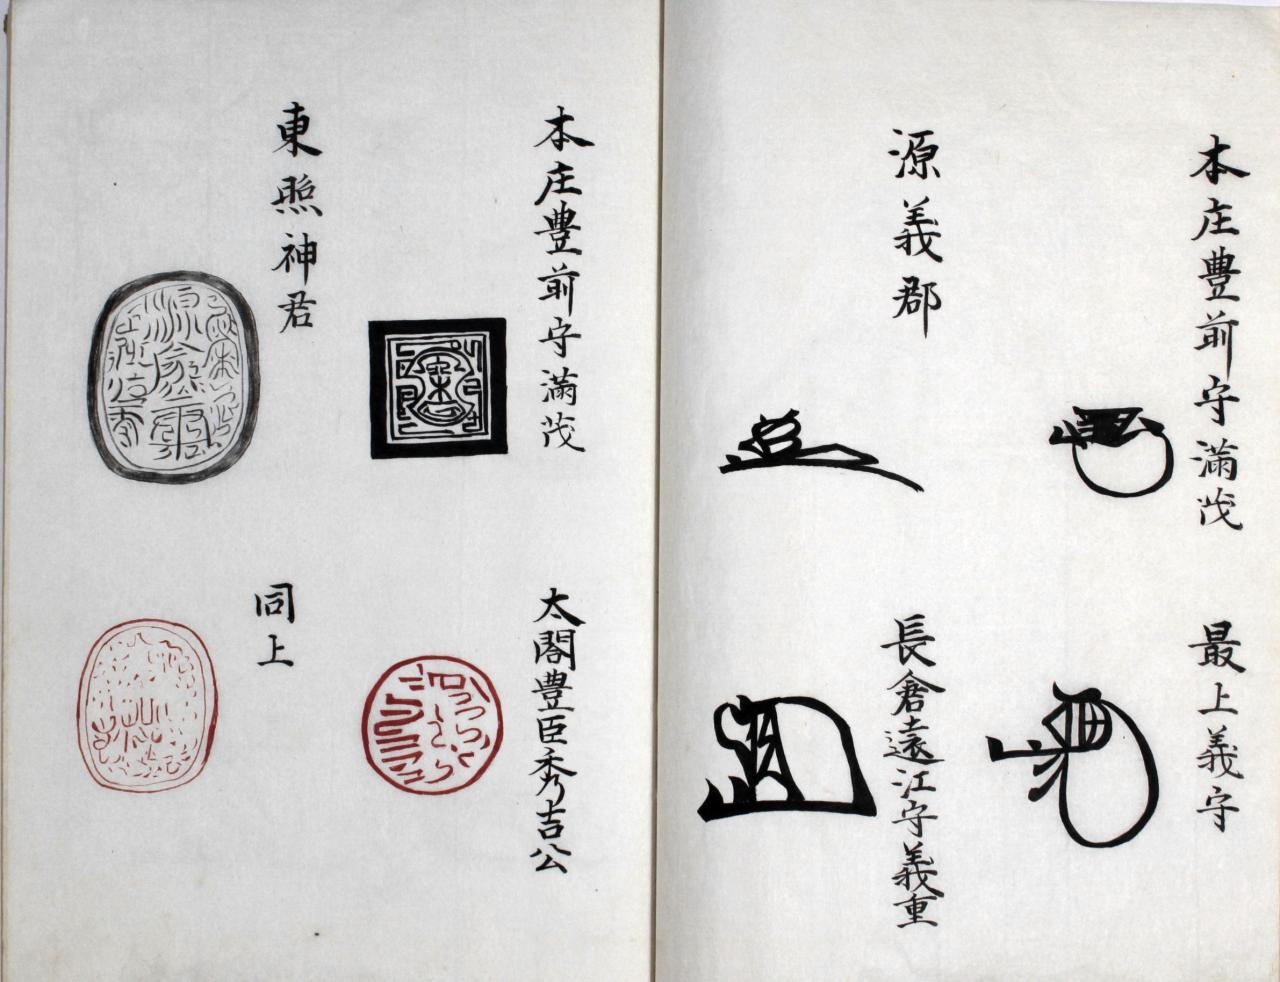 本庄豊前守滿茂
最上義守
源義郡
長倉遠江守義重
本庄豊前守滿茂
太閤豊臣秀吉公
東照神君
同上